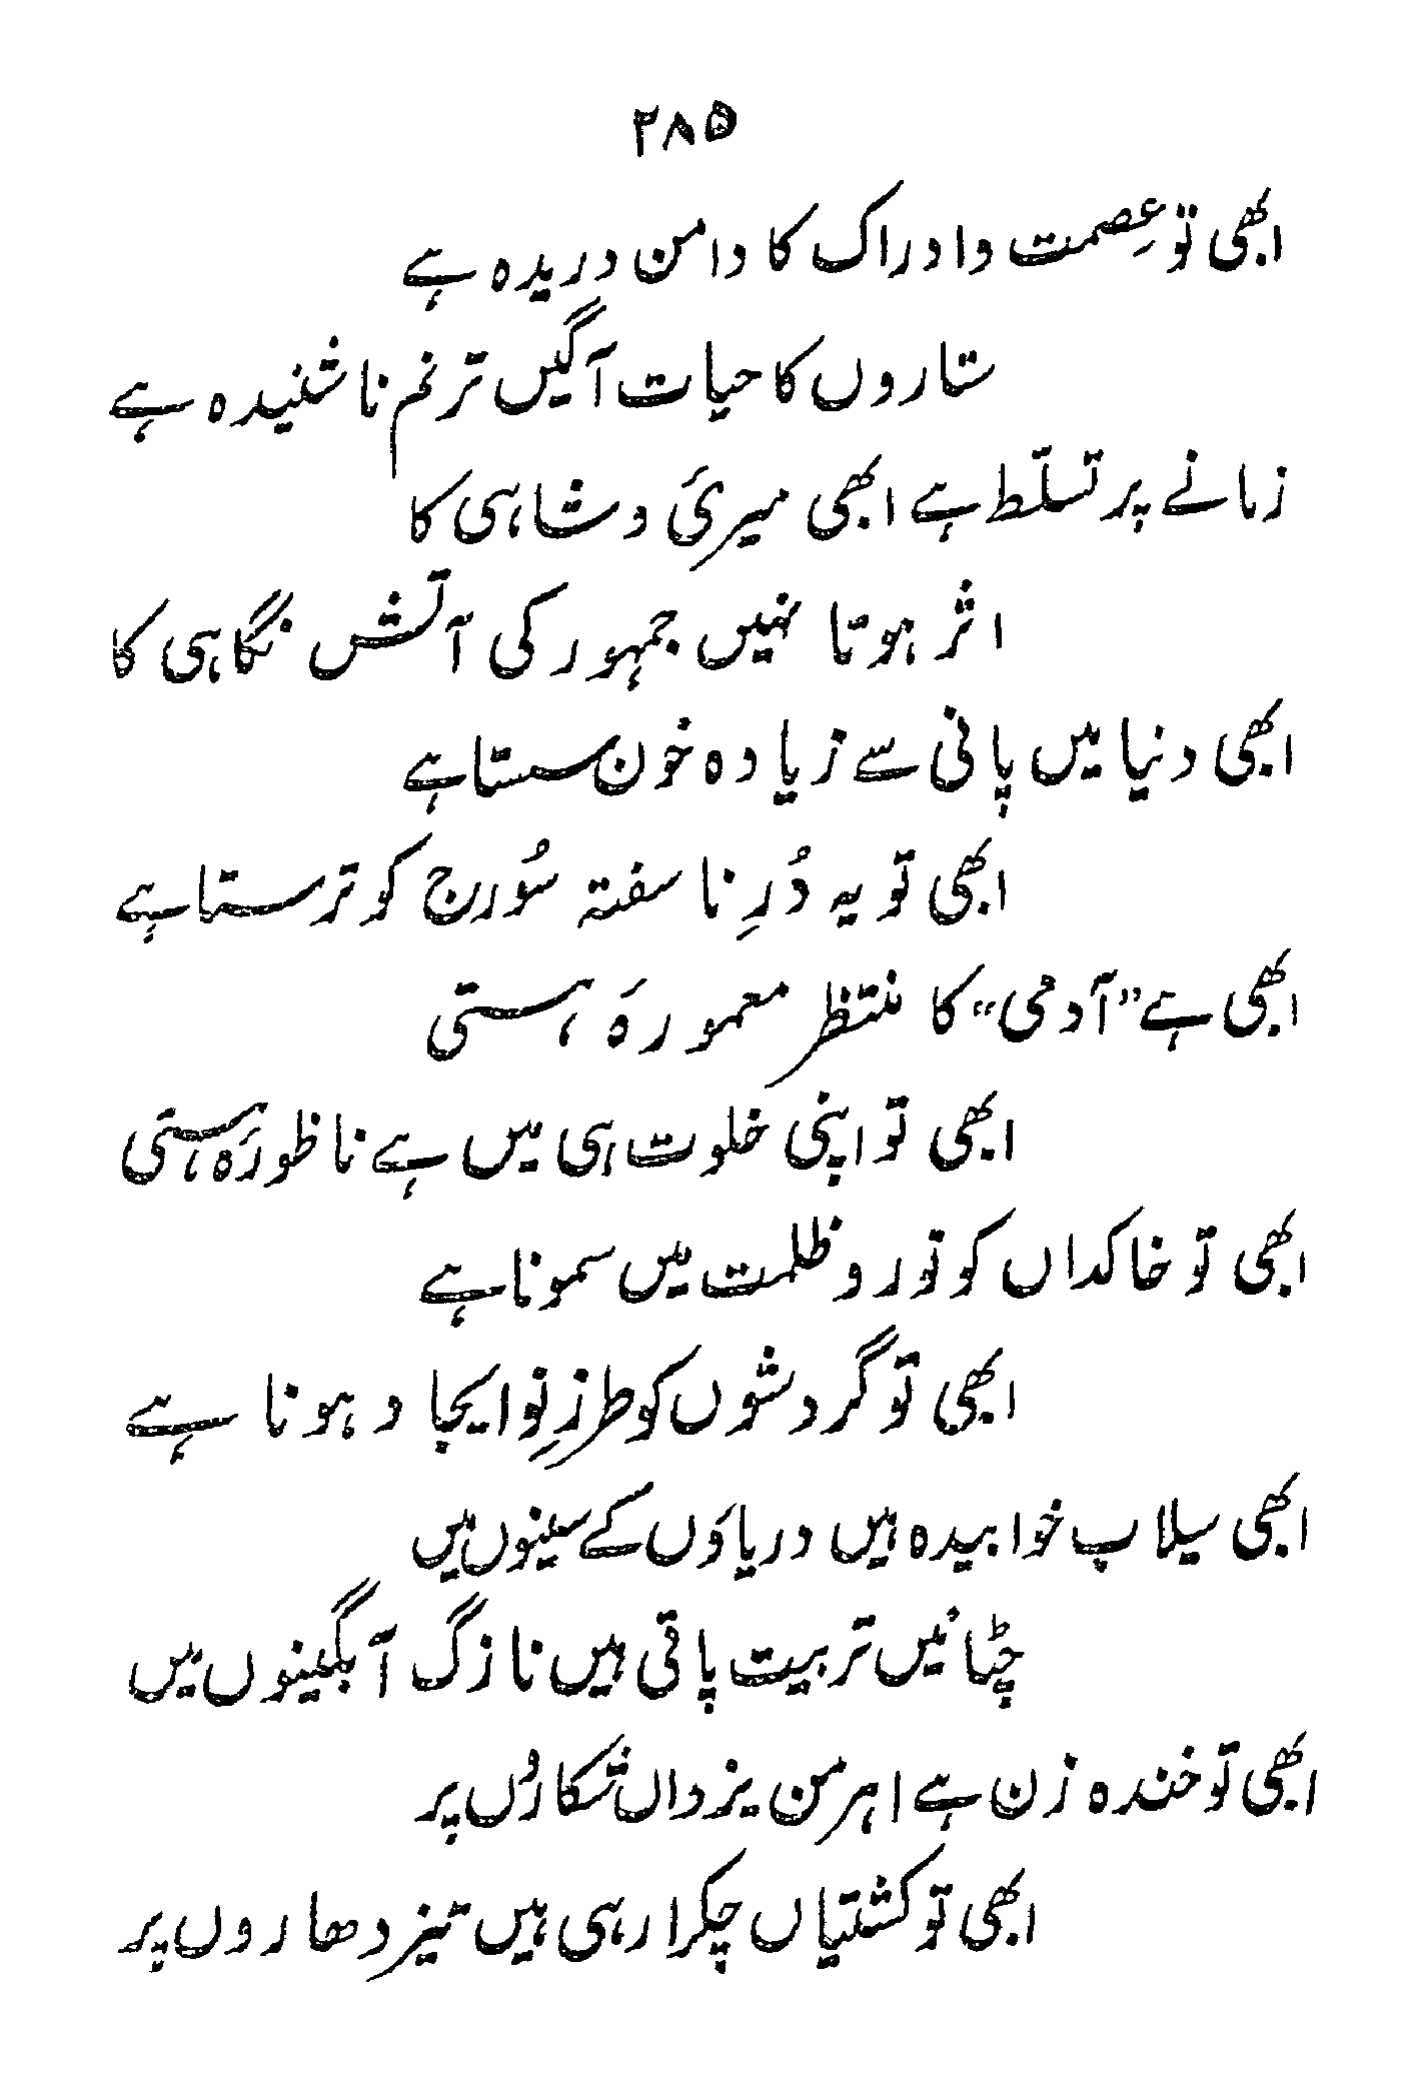 ۲۸۵
ابھی تو عِصمت و ادراک کا دامن دریدہ ہے
ستاروں کا حیات آگیں ترنم نا شنیدہ ہے
زمانے پر تسلّط ہے ابھی میریَ و شاہی کا
اثر ہوتا نہیں جمہور کی آتش نگاہی کا
ابھی دنیا میں پانی سے زیادہ خون سستا ہے
ابھی تو یہ دُرِ نا سفتہ سُورج کو ترستا ہے
ابھی ہے "آدمی" کا منتظر معمورہَ ہستی
ابھی تو اپنی خلوت ہی میں ہے ناظورہَ ہستی
ابھی تو خاکداں کو نور و ظلمت میں سمونا ہے
ابھی تو گردشوں کو طرزِ نو ایجاد ہونا ہے
ابھی سیلاب خوابیدہ ہیں دریاوَں کے سینوں میں
چٹانیں تربیت پاتی ہیں نازک آبگینوں میں
ابھی تو خندہ زن ہے اہرمن یزداں شکاروُں پر
ابھی تو کشتیاں چکرا رہی ہیں تیز دھاروں پر